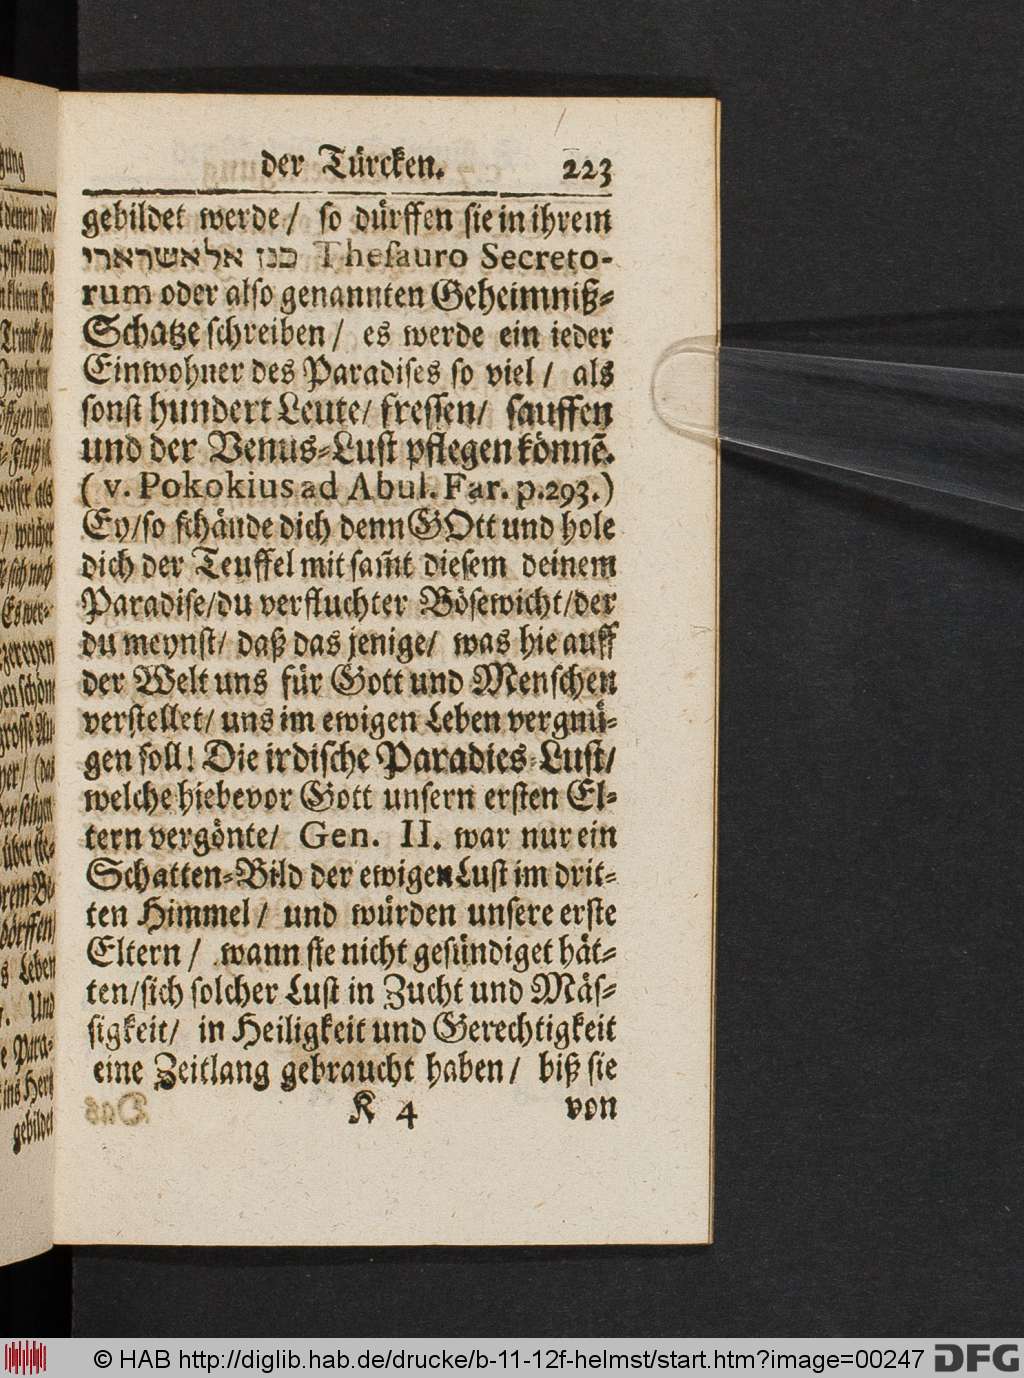 der Türcken. 223
gebildet werde/ so dürffen sie in ihrem
כנז אלאשרארי Thesauro Secreto-
rum oder also genannten Geheimniß-
Schatze schreiben/ es werde ein ieder
Einwohner des Paradises so viel/ als
sonst hundert Leute/ fressen/ sauffen
und der Venus-Lust pflegen könnē.
( v. Pokokius ad Abul. Far. p. 293.)
Ey/so schände dich denn GOtt und hole
dich der Teuffel mit sam̃t diesem deinem
Paradise/du verfluchter Bösewicht/der
du meynst/ daß das jenige/ was hie auff
der Welt uns für Gott und Menschen
verstellet/ uns im ewigen Leben vergnü-
gen soll! Die irdische Paradies-Lust/
welche hiebevor Gott unsern ersten El-
tern vergönte/ Gen. II. war nur ein
Schatten-Bild der ewigen Lust im drit-
ten Himmel/ und würden unsere erste
Eltern/ wann sie nicht gesündiget hät-
ten/sich solcher Lust in Zucht und Mäs-
sigkeit/ in Heiligkeit und Gerechtigkeit
eine Zeitlang gebraucht haben/ biß sie
K 4 von
© HAB http://diglib.hab.de/drucke/b-11-12f-helmst/start.htm?image=00247 DFG